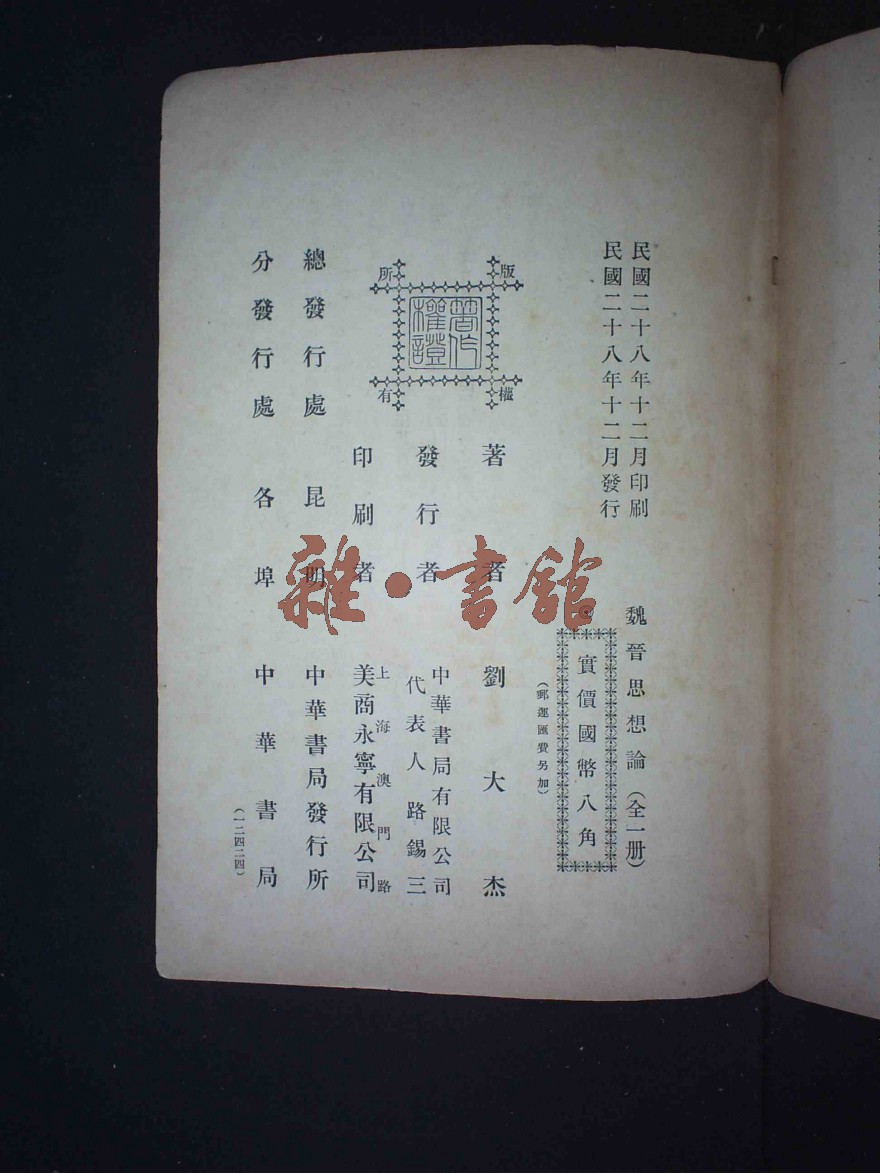 民國二十八年十二月印刷
民國二十八年十二月發行
魏晉思想論（全一册）
實價國幣八角
（郵運匯費另加）
版權所有
著作權證
著者 劉大杰
發行者 中華書局有限公司
代表人路錫三
印刷者 上海澳門路
美商永寧有限公司
總發行處 昆明 中華書局發行所
分發行處 各埠 中華書局
（一二四二四）
雜·書館